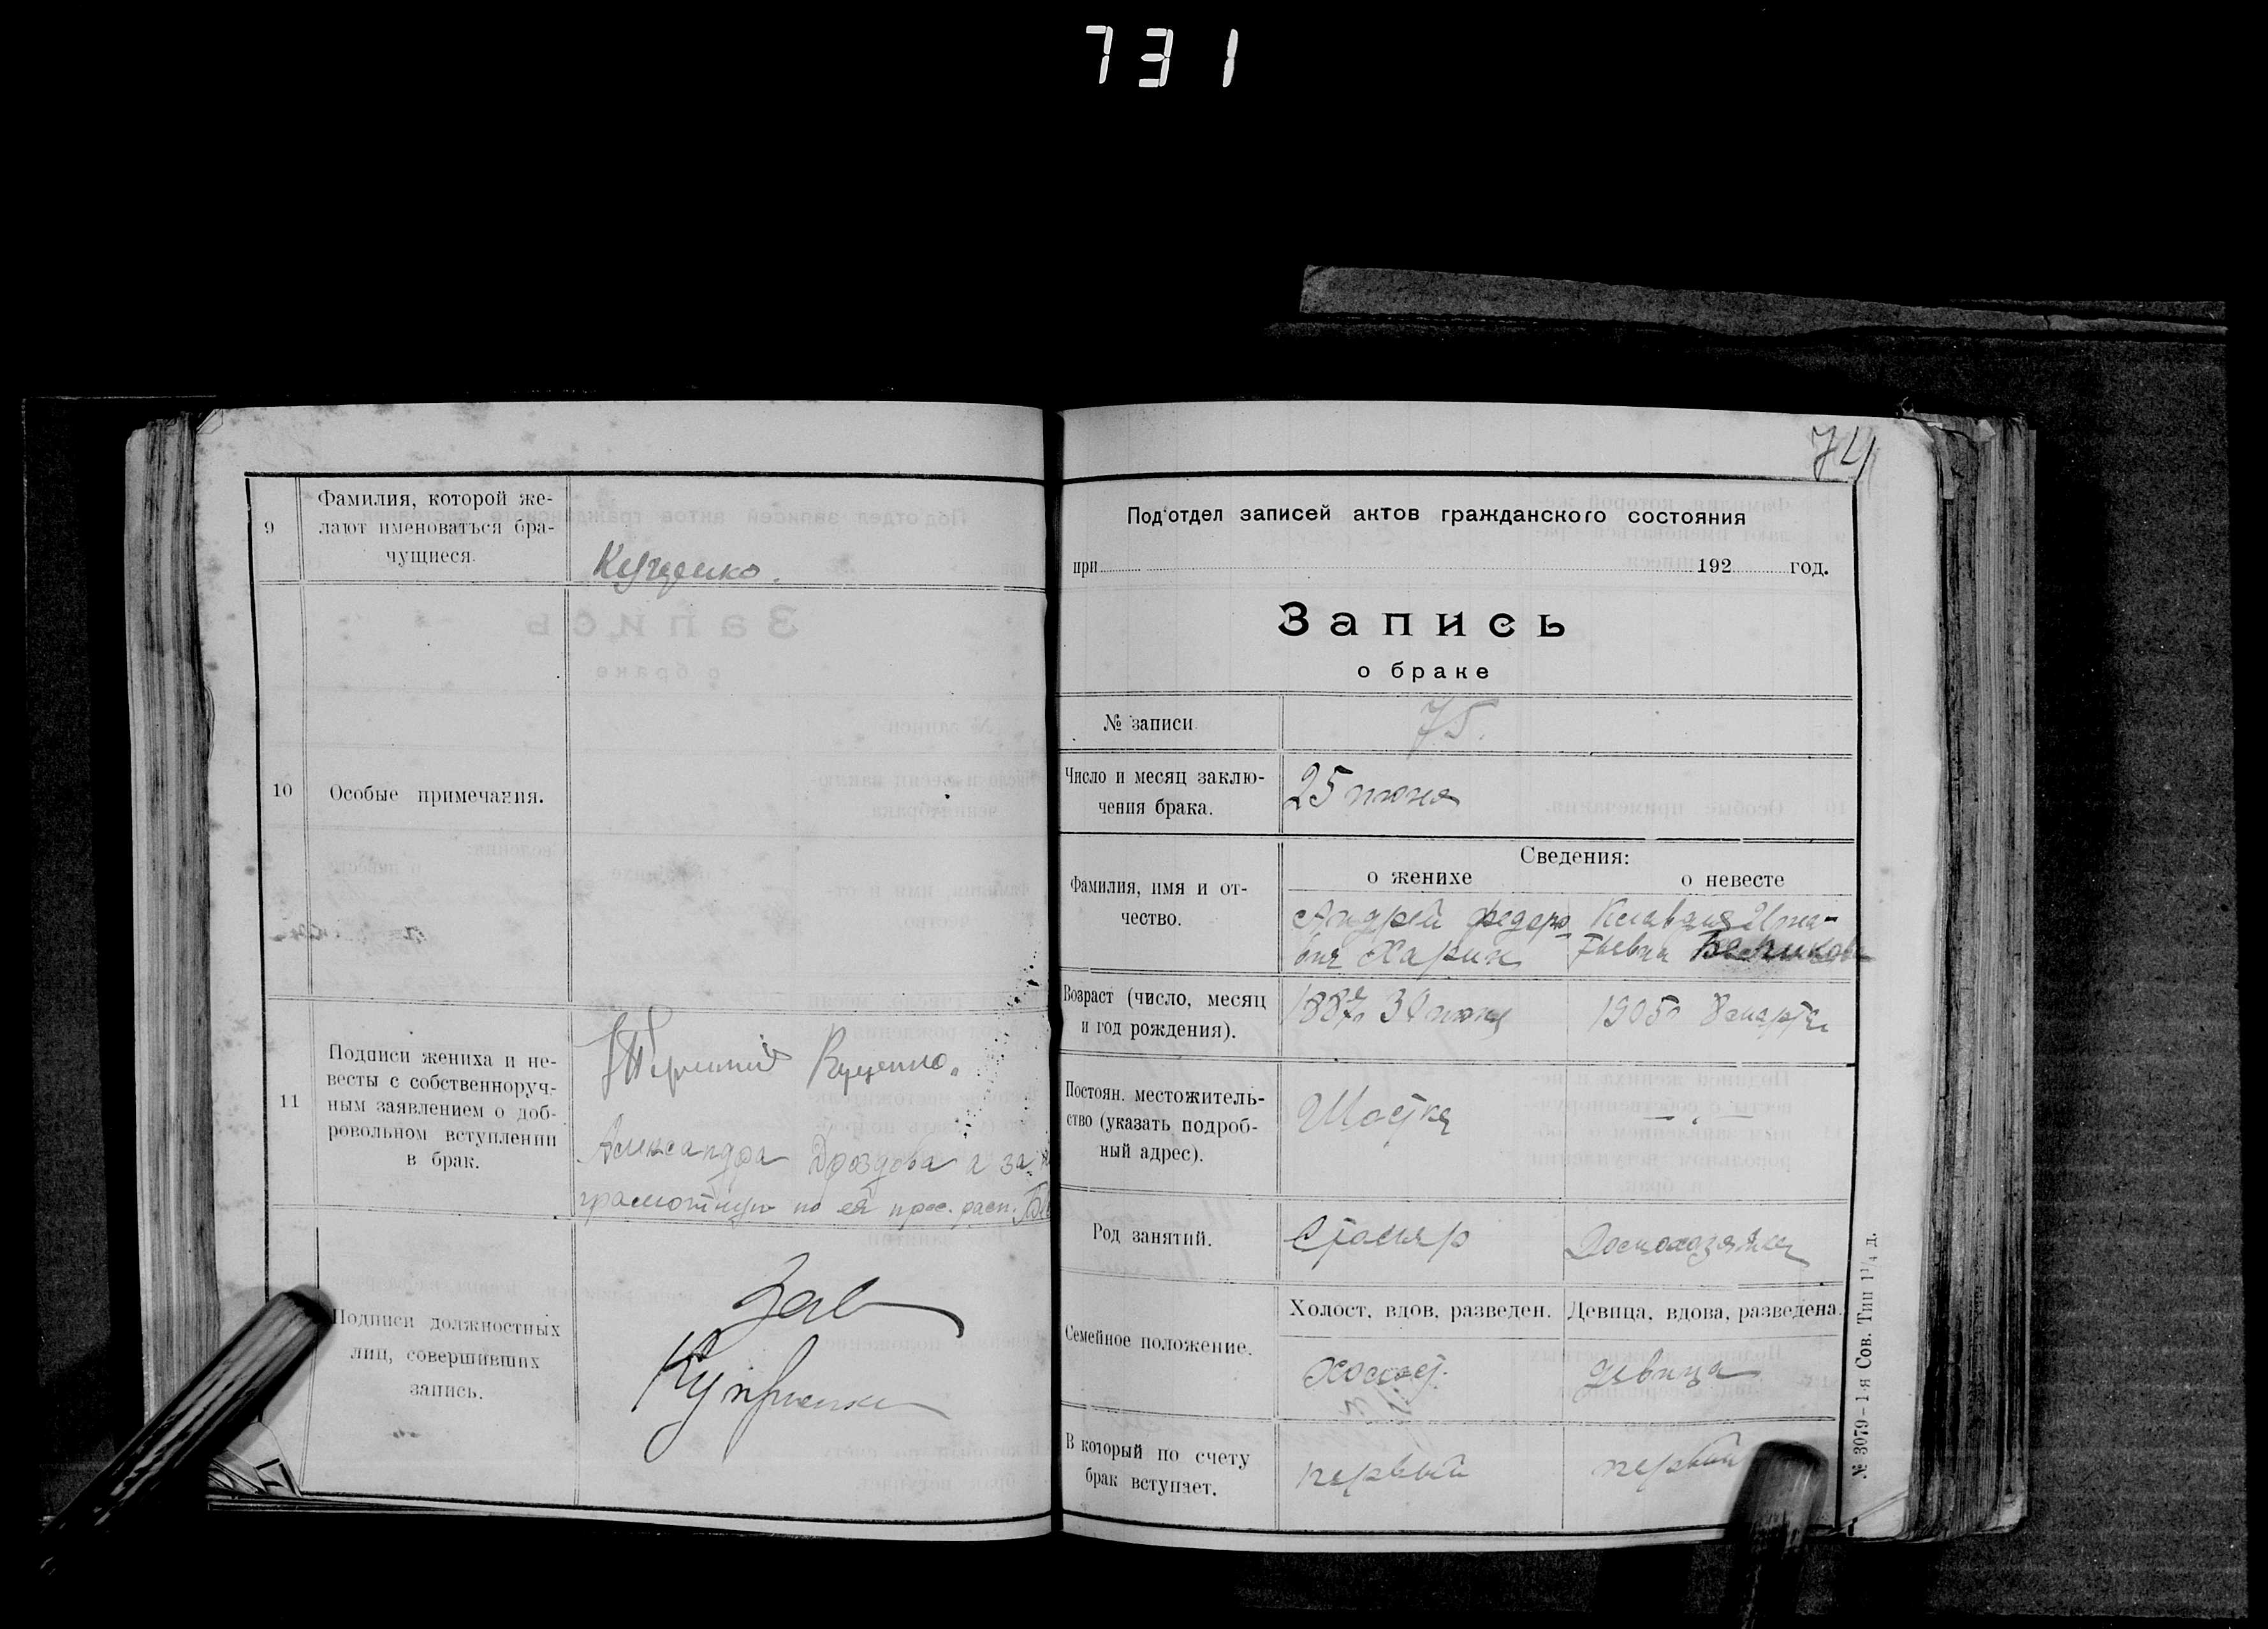 731
9
Фамилия, которой же-
лают именоваться бра-
чущиеся.
Куценко.
10
Особые примечания.
11
Подписи жениха и не-
весты с собственноруч-
ным заявлением о доб-
ровольном вступлении
в брак.
Куценко.
Александра Дроздова а за
грамотную по ея прос. расп.
Подписи должностных
лиц, совершивших
запись.
Зав
74
Подотдел записей актов гражданского состояния
при 192 год.
Запись
о браке
№ записи
75.
Число и месяц заклю-
чения брака.
25 июня
Сведения:
о женихе
о невесте
Фамилия, имя и от-
чество.
Андрей Федоро
вич Харин
Клавдия Игна-
тьевна
Возраст (число, месяц
и год рождения).
1887 июня
1905 8 марта
Постоян. местожитель-
ство (указать подроб-
ный адрес).
Шостка
— . —
Род занятий.
Столяр
Домохозяйка
Семейное положение.
Холост, вдов, разведен.
Девица, вдова, разведена.
Холост.
девица
В который по счету
брак вступает.
первый
первый
№ 3079–1-я Сов. Тип 1¼ д.